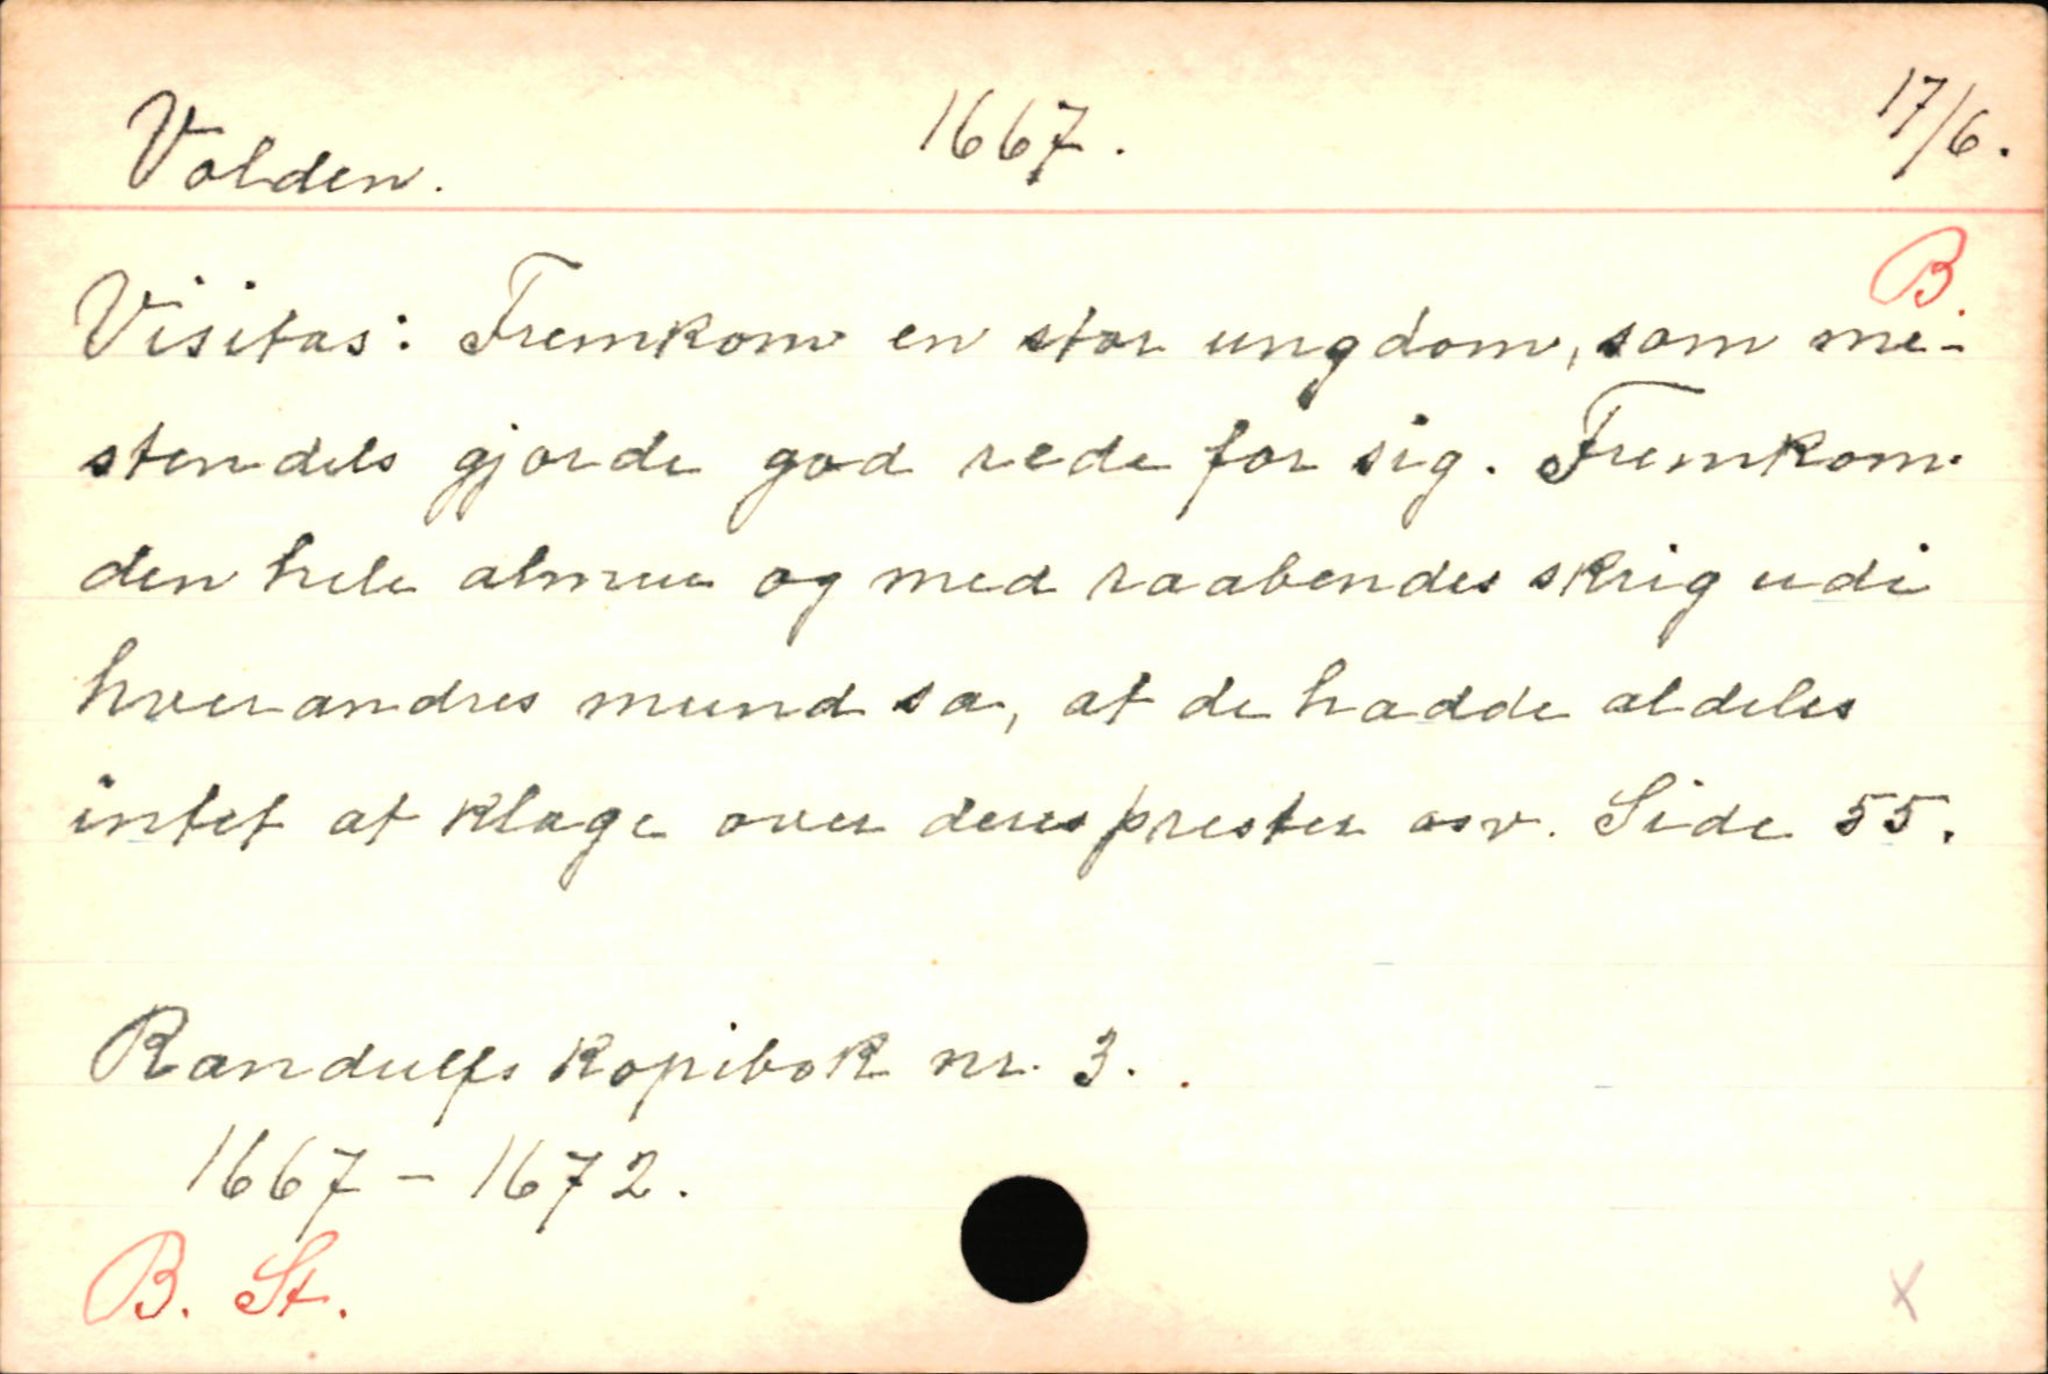 Volden. 1667. 17/6.
B.
Visitas: Fremkom en stor ungdom, som me-
stendels gjorde god rede for sig. Fremkom
den hele almue og med raabendes skrig udi
hverandres mund sa, at de hadde aldeles
intet at klage over deres prester osv. Side 55.
Randulfs kopibok nr. 3.
1667-1672.
B. St.
x